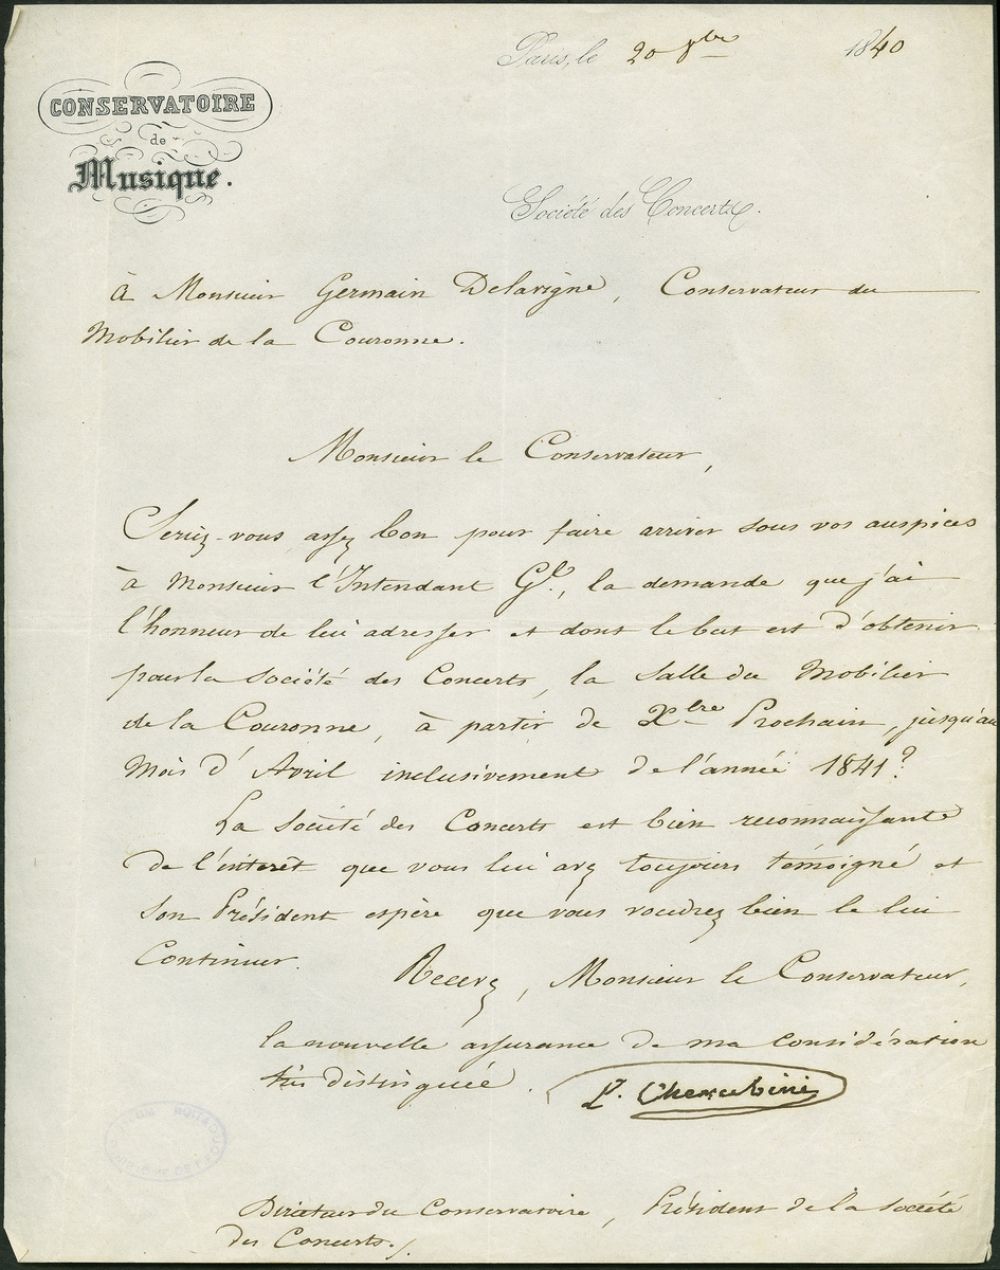 Paris, le 20 8bre 1840
CONSERVATOIRE
de
Musique.
Société des Concerts.
à Monsieur Germain Delavigne, Conservateur du
Mobilier de la Couronne.
Monsieur le Conservateur,
Seriez-vous assez bon pour faire arriver sous vos auspices
à Monsieur l'Intendant Gal., la demande que j'ai
l'honneur de lui adresser et dont le but est d'obtenir
pour la Société des Concerts, la Salle du Mobilier
de la Couronne, à partir de Xbre Prochain, jusqu'au
Mois d'Avril inclusivement de l'année 1841?
La Société des Concerts est bien reconnaissante
de l'interêt que vous lui avez toujours témoigné et
son Président espère que vous voudrez bien le lui
Continuer.
Recevez, Monsieur le Conservateur,
la nouvelle assurance de ma considération
très distinguée.
L. Cherubini
Directeur du Conservatoire, Président de la Société
des Concerts./.